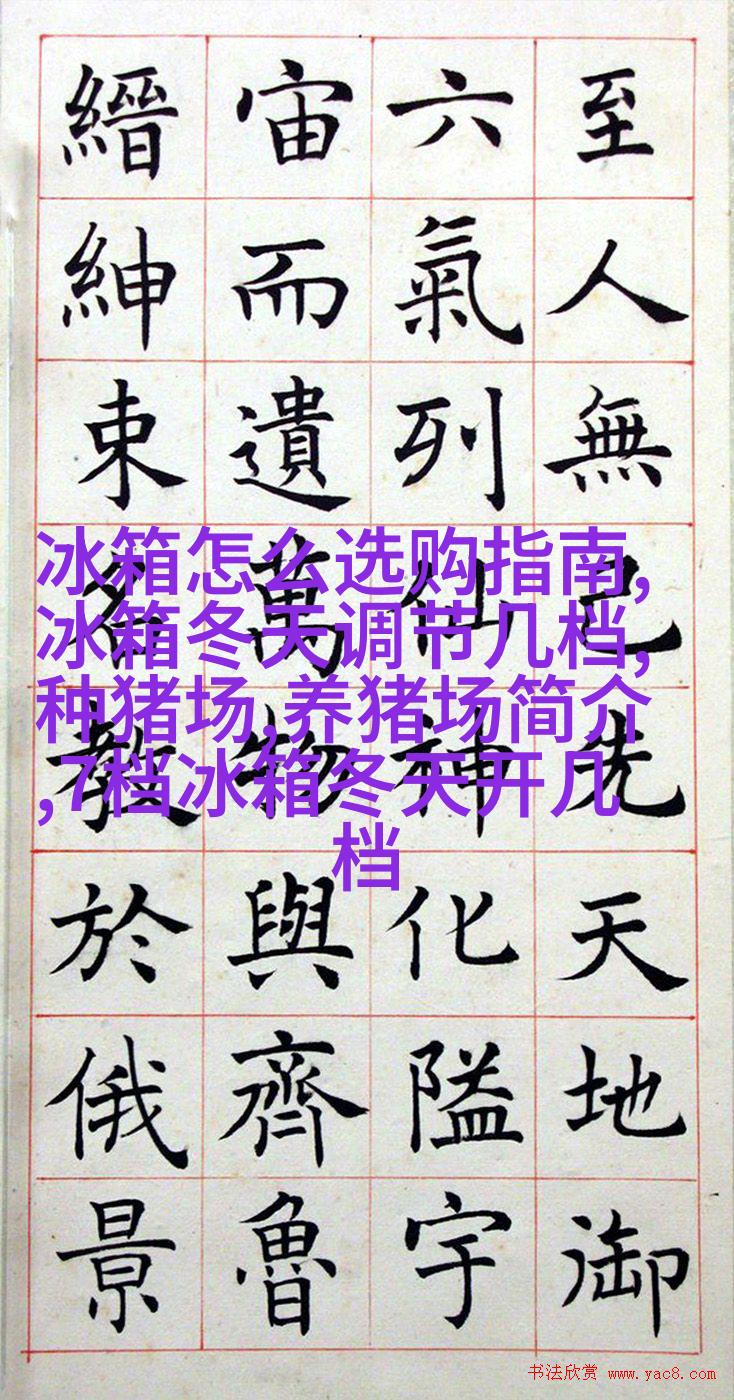 至人無己先天地御
六氣列仙神化隘宇
宙而遺萬物與齊魯
縉紳束名教於俄景
冰箱怎么选购指南,
冰箱冬天调节几档,
种猪场,养猪场简介
,7档冰箱冬天开几
档
书法欣赏 www.yac8.com